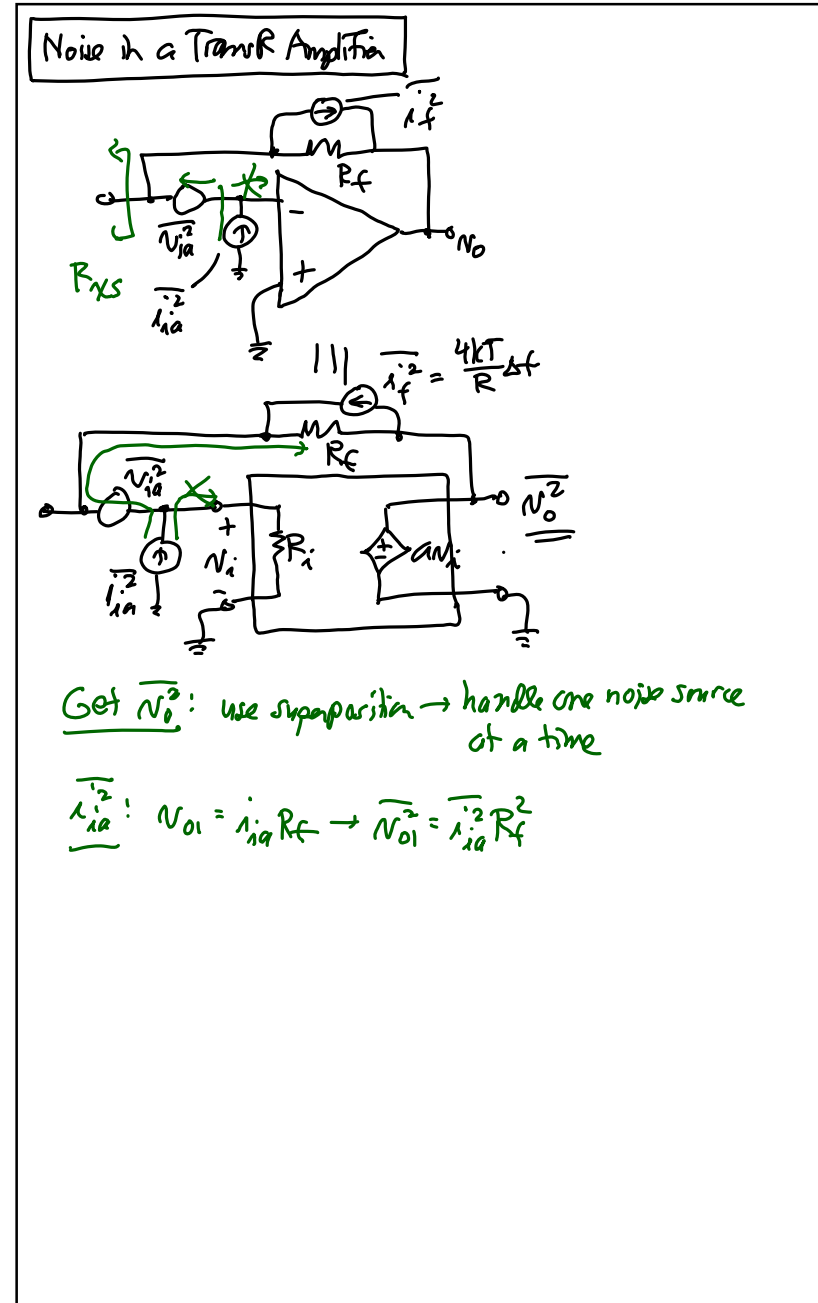 Noise in a TransR Amplifier
i_f^2
R_f
-
v_ia^2
+
v_o
R_xs
i_ia^2
||| i_f^2 = 4kT/R Δf
R_f
v_ia^2
v_o^2
+
R_i
+
-
av_i
v_i
i_ia^2
-
Get v_o^2: use superposition → handle one noise source
at a time
i_ia^2: v_o1 = i_ia R_f → v_o1^2 = i_ia^2 R_f^2